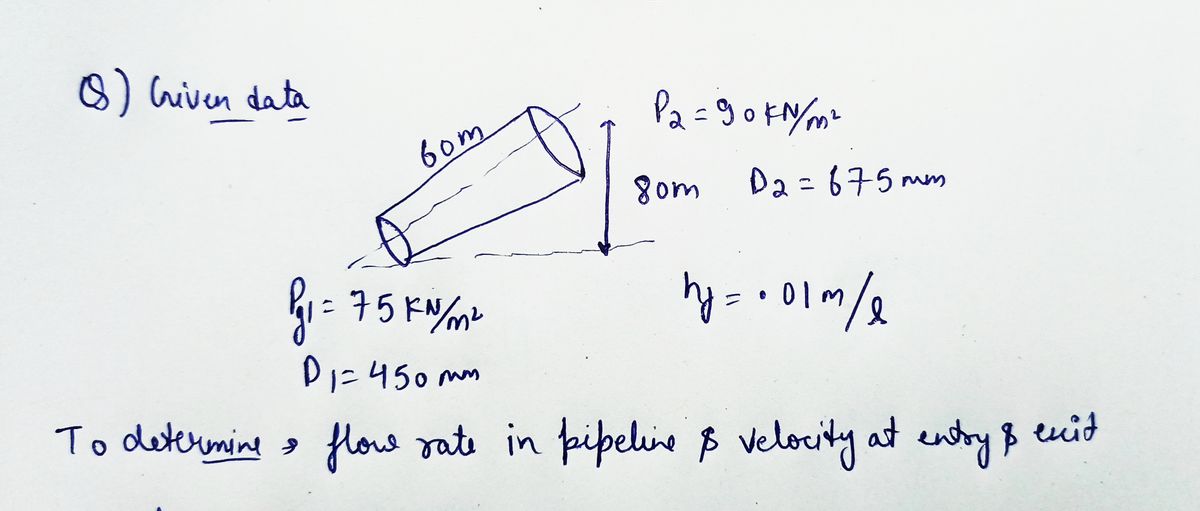 Q) Given data
60m
P2 = 90 KN/m²
80m D2 = 675 mm
Pg1 = 75 KN/m²
hf = .01 m/l
D1 = 450 mm
To determine → flow rate in pipeline & velocity at entry & exit